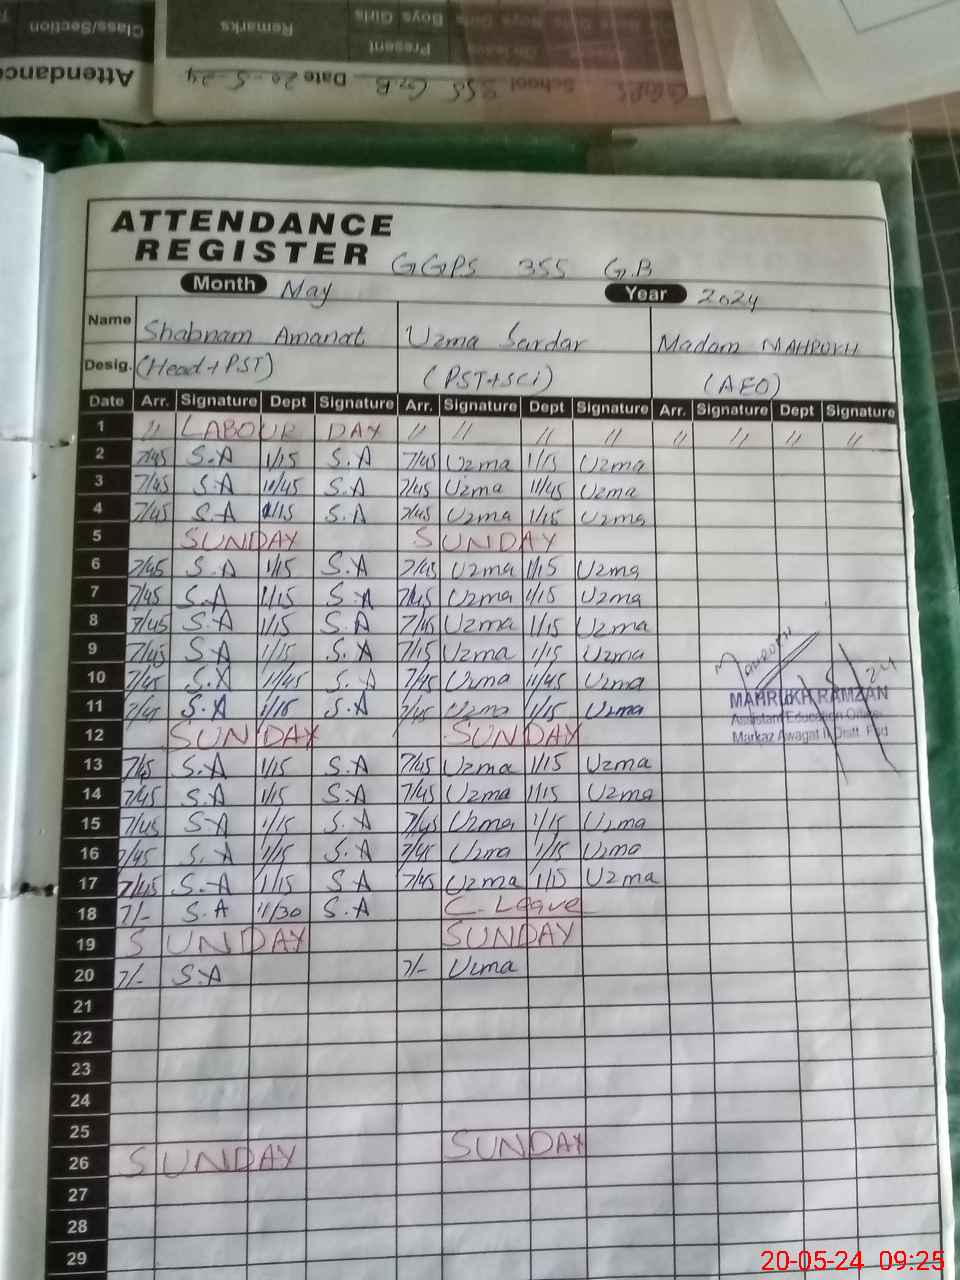 Class/Section
Remarks
Boys Girls
Present
Attendanc
School 355 G.B Date 20-5-24
ATTENDANCE
REGISTER GGPS 355 G.B
Month May Year 2024
Name Shabnam Amanat Uzma Sardar Madam MAHRUKH
Desig. (Head+PST) (PST+SCi) (AEO)
Date Arr. Signature Dept Signature Arr. Signature Dept Signature Arr. Signature Dept Signature
1 " LABOUR DAY " " " " " " " "
2 7/45 S.A 1/15 S.A 7/45 Uzma 1/15 Uzma
3 7/45 S.A 11/45 S.A 7/45 Uzma 11/45 Uzma
4 7/45 S.A 1/15 S.A 7/45 Uzma 1/15 Uzma
5 SUNDAY SUNDAY
6 7/45 S.A 1/15 S.A 7/45 Uzma 1/15 Uzma
7 7/45 S.A 1/15 S.A 7/45 Uzma 1/15 Uzma
8 7/45 S.A 1/15 S.A 7/45 Uzma 1/15 Uzma
9 7/45 S.A 1/15 S.A 7/15 Uzma 1/15 Uzma
10 7/45 S.A 11/45 S.A 7/45 Uzma 11/45 Uzma
11 7/45 S.A 1/15 S.A 7/45 Uzma 1/15 Uzma
MAHRUKH RAMZAN
Assistant Education Officer
Markaz Awagat II Distt. Fsd
12 SUNDAY SUNDAY
13 7/45 S.A 1/15 S.A 7/45 Uzma 1/15 Uzma
14 7/45 S.A 1/15 S.A 7/45 Uzma 1/15 Uzma
15 7/45 S.A 1/15 S.A 7/45 Uzma 1/15 Uzma
16 7/45 S.A 1/15 S.A 7/45 Uzma 1/15 Uzma
17 7/45 S.A 1/15 S.A 7/45 Uzma 1/15 Uzma
18 7/- S.A 11/30 S.A C. Leave
19 SUNDAY SUNDAY
20 7/- S.A 7/- Uzma
21
22
23
24
25
26 SUNDAY SUNDAY
27
28
29
20-05-24 09:25